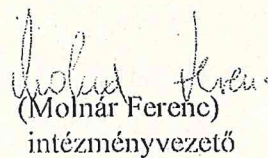 Molnár Ferenc
(Molnár Ferenc)
intézményvezető